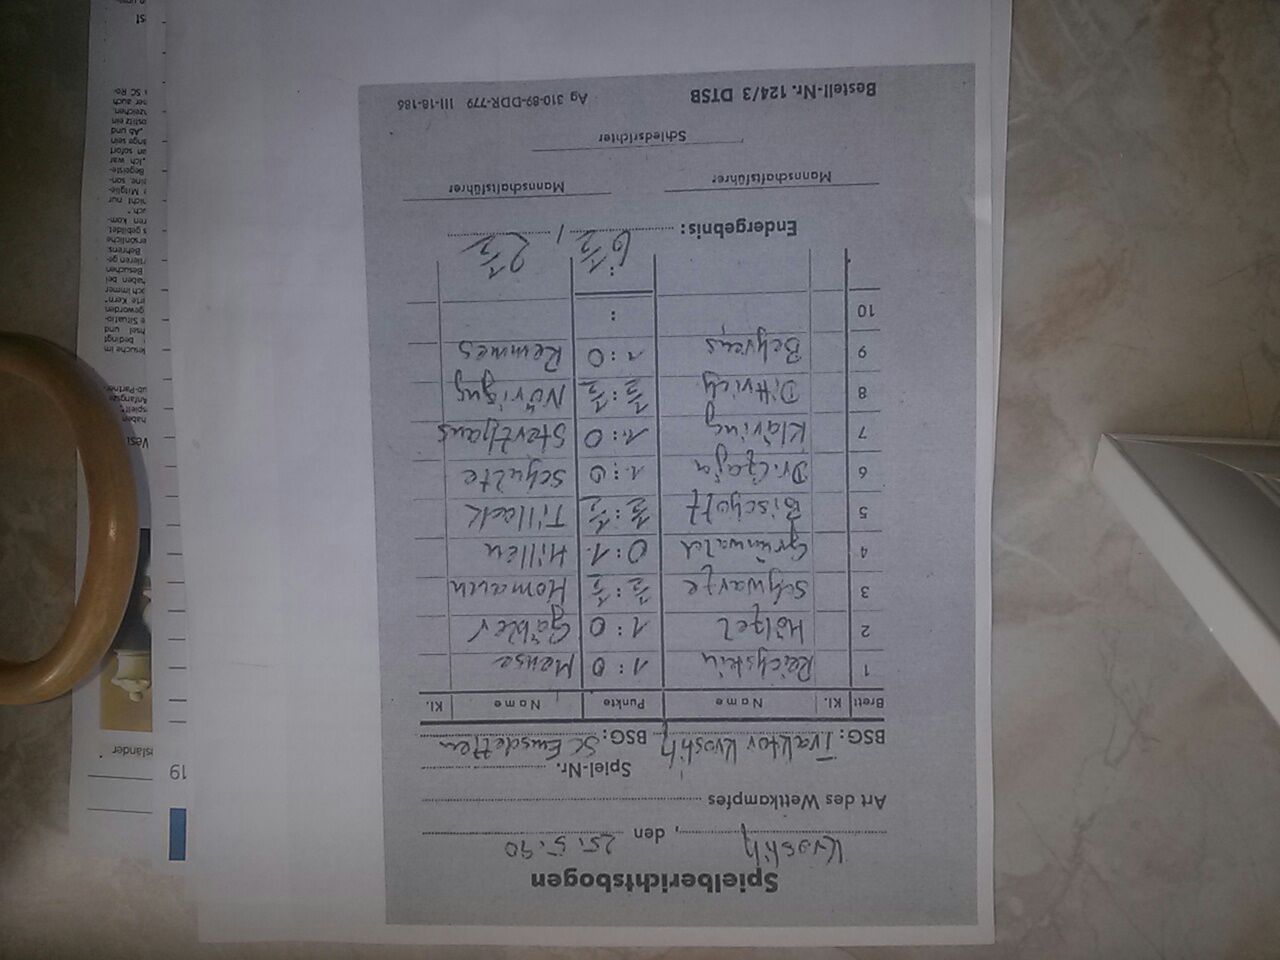 Spielberichtsbogen
Krostitz, den 25.5.90
Art des Wettkampfes
Spiel-Nr.
BSG: Traktor Krostitz BSG: SC Emsdetten
Brett Kl. Name Punkte Name Kl.
1 Reichstein 1:0 Mense
2 Hölzel 1:0 Gäbler
3 Schwarze ½:½ Homann
4 Grünwald 0:1 Hillen
5 Bischoff ½:½ Tillack
6 Dr. Czaja 1:0 Schulte
7 Kläring 1:0 Sterthaus
8 Dittrich ½:½ Nöring
9 Behrens 1:0 Remmes
10 :
Endergebnis: 6½ : 2½
Mannschaftsführer Mannschaftsführer
Schiedsrichter
Bestell-Nr. 124/3 DTSB Ag 310-89-DDR-779 III-18-186
19